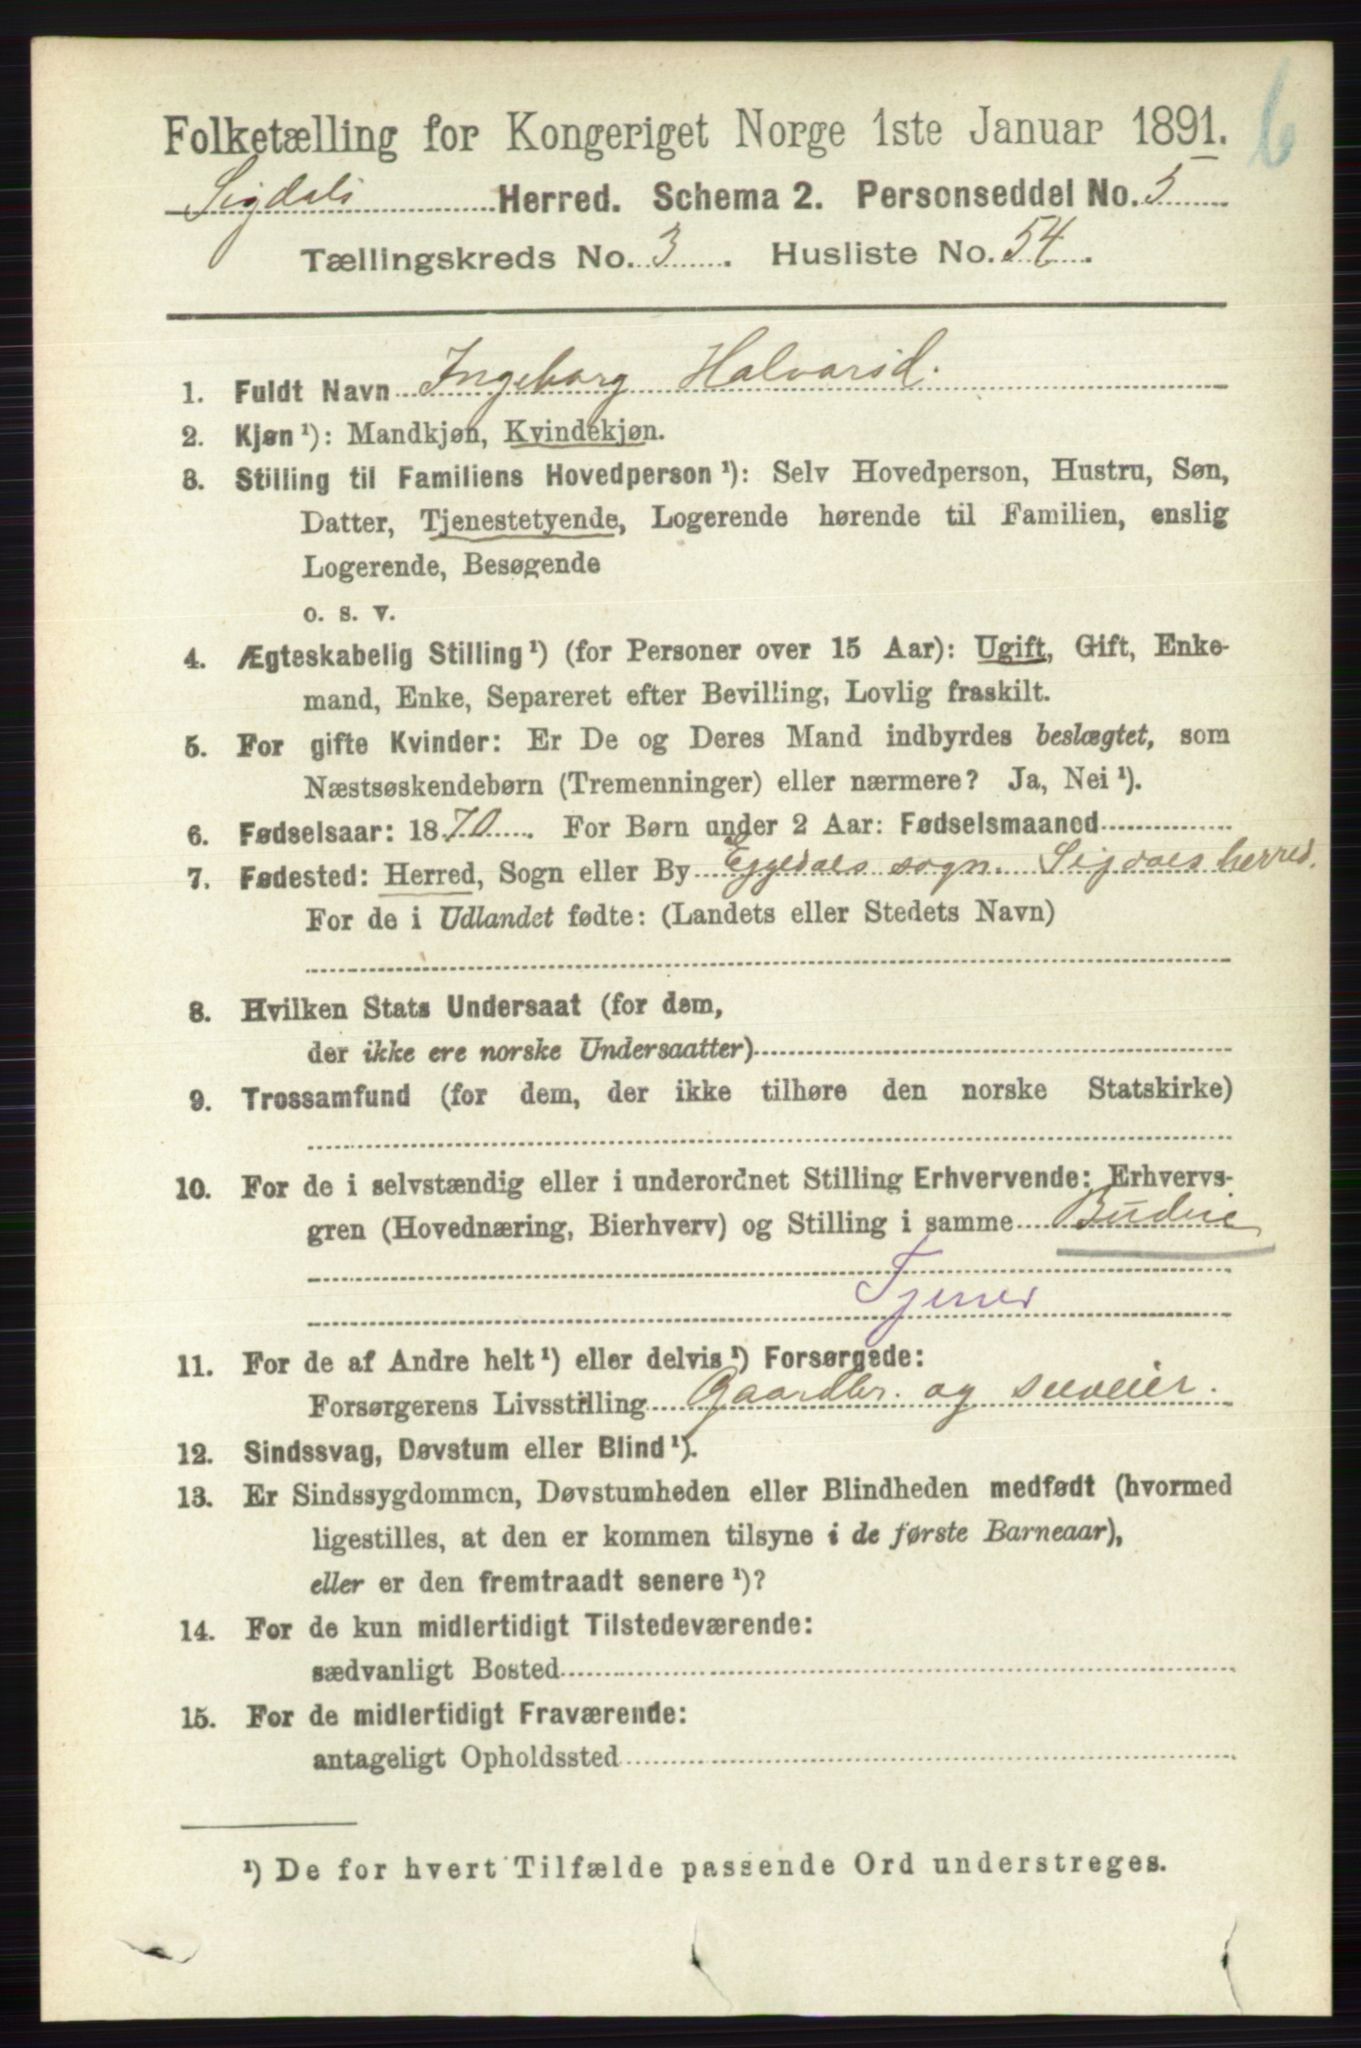 6
Folketælling for Kongeriget Norge 1ste Januar 1891.
Sigdals Herred. Schema 2. Personseddel No. 5
Tællingskreds No. 3. Husliste No. 54.
1. Fuldt Navn Ingeborg Halvorsd.
2. Kjøn ¹): Mandkjøn, Kvindekjøn.
3. Stilling til Familiens Hovedperson ¹): Selv Hovedperson, Hustru, Søn,
Datter, Tjenestetyende, Logerende hørende til Familien, enslig
Logerende, Besøgende
o. s. v.
4. Ægteskabelig Stilling ¹) (for Personer over 15 Aar): Ugift, Gift, Enke-
mand, Enke, Separeret efter Bevilling, Lovlig fraskilt.
5. For gifte Kvinder: Er De og Deres Mand indbyrdes beslægtet, som
Næstsøskendebørn (Tremenninger) eller nærmere? Ja, Nei ¹).
6. Fødselsaar: 1870. For Børn under 2 Aar: Fødselsmaaned
7. Fødested: Herred, Sogn eller By Eggedals sogn. Sigdals herred.
For de i Udlandet fødte: (Landets eller Stedets Navn)
8. Hvilken Stats Undersaat (for dem,
der ikke ere norske Undersaatter)
9. Trossamfund (for dem, der ikke tilhøre den norske Statskirke)
10. For de i selvstændig eller i underordnet Stilling Erhvervende: Erhvervs-
gren (Hovednæring, Bierhverv) og Stilling i samme Budeie
Tjener
11. For de af Andre helt ¹) eller delvis ¹) Forsørgede:
Forsørgerens Livsstilling Gaardbr. og
12. Sindssvag, Døvstum eller Blind ¹).
13. Er Sindssygdommen, Døvstumheden eller Blindheden medfødt (hvormed
ligestilles, at den er kommen tilsyne i de første Barneaar),
eller er den fremtraadt senere ¹)?
14. For de kun midlertidigt Tilstedeværende:
sædvanligt Bosted
15. For de midlertidigt Fraværende:
antageligt Opholdssted
¹) De for hvert Tilfælde passende Ord understreges.